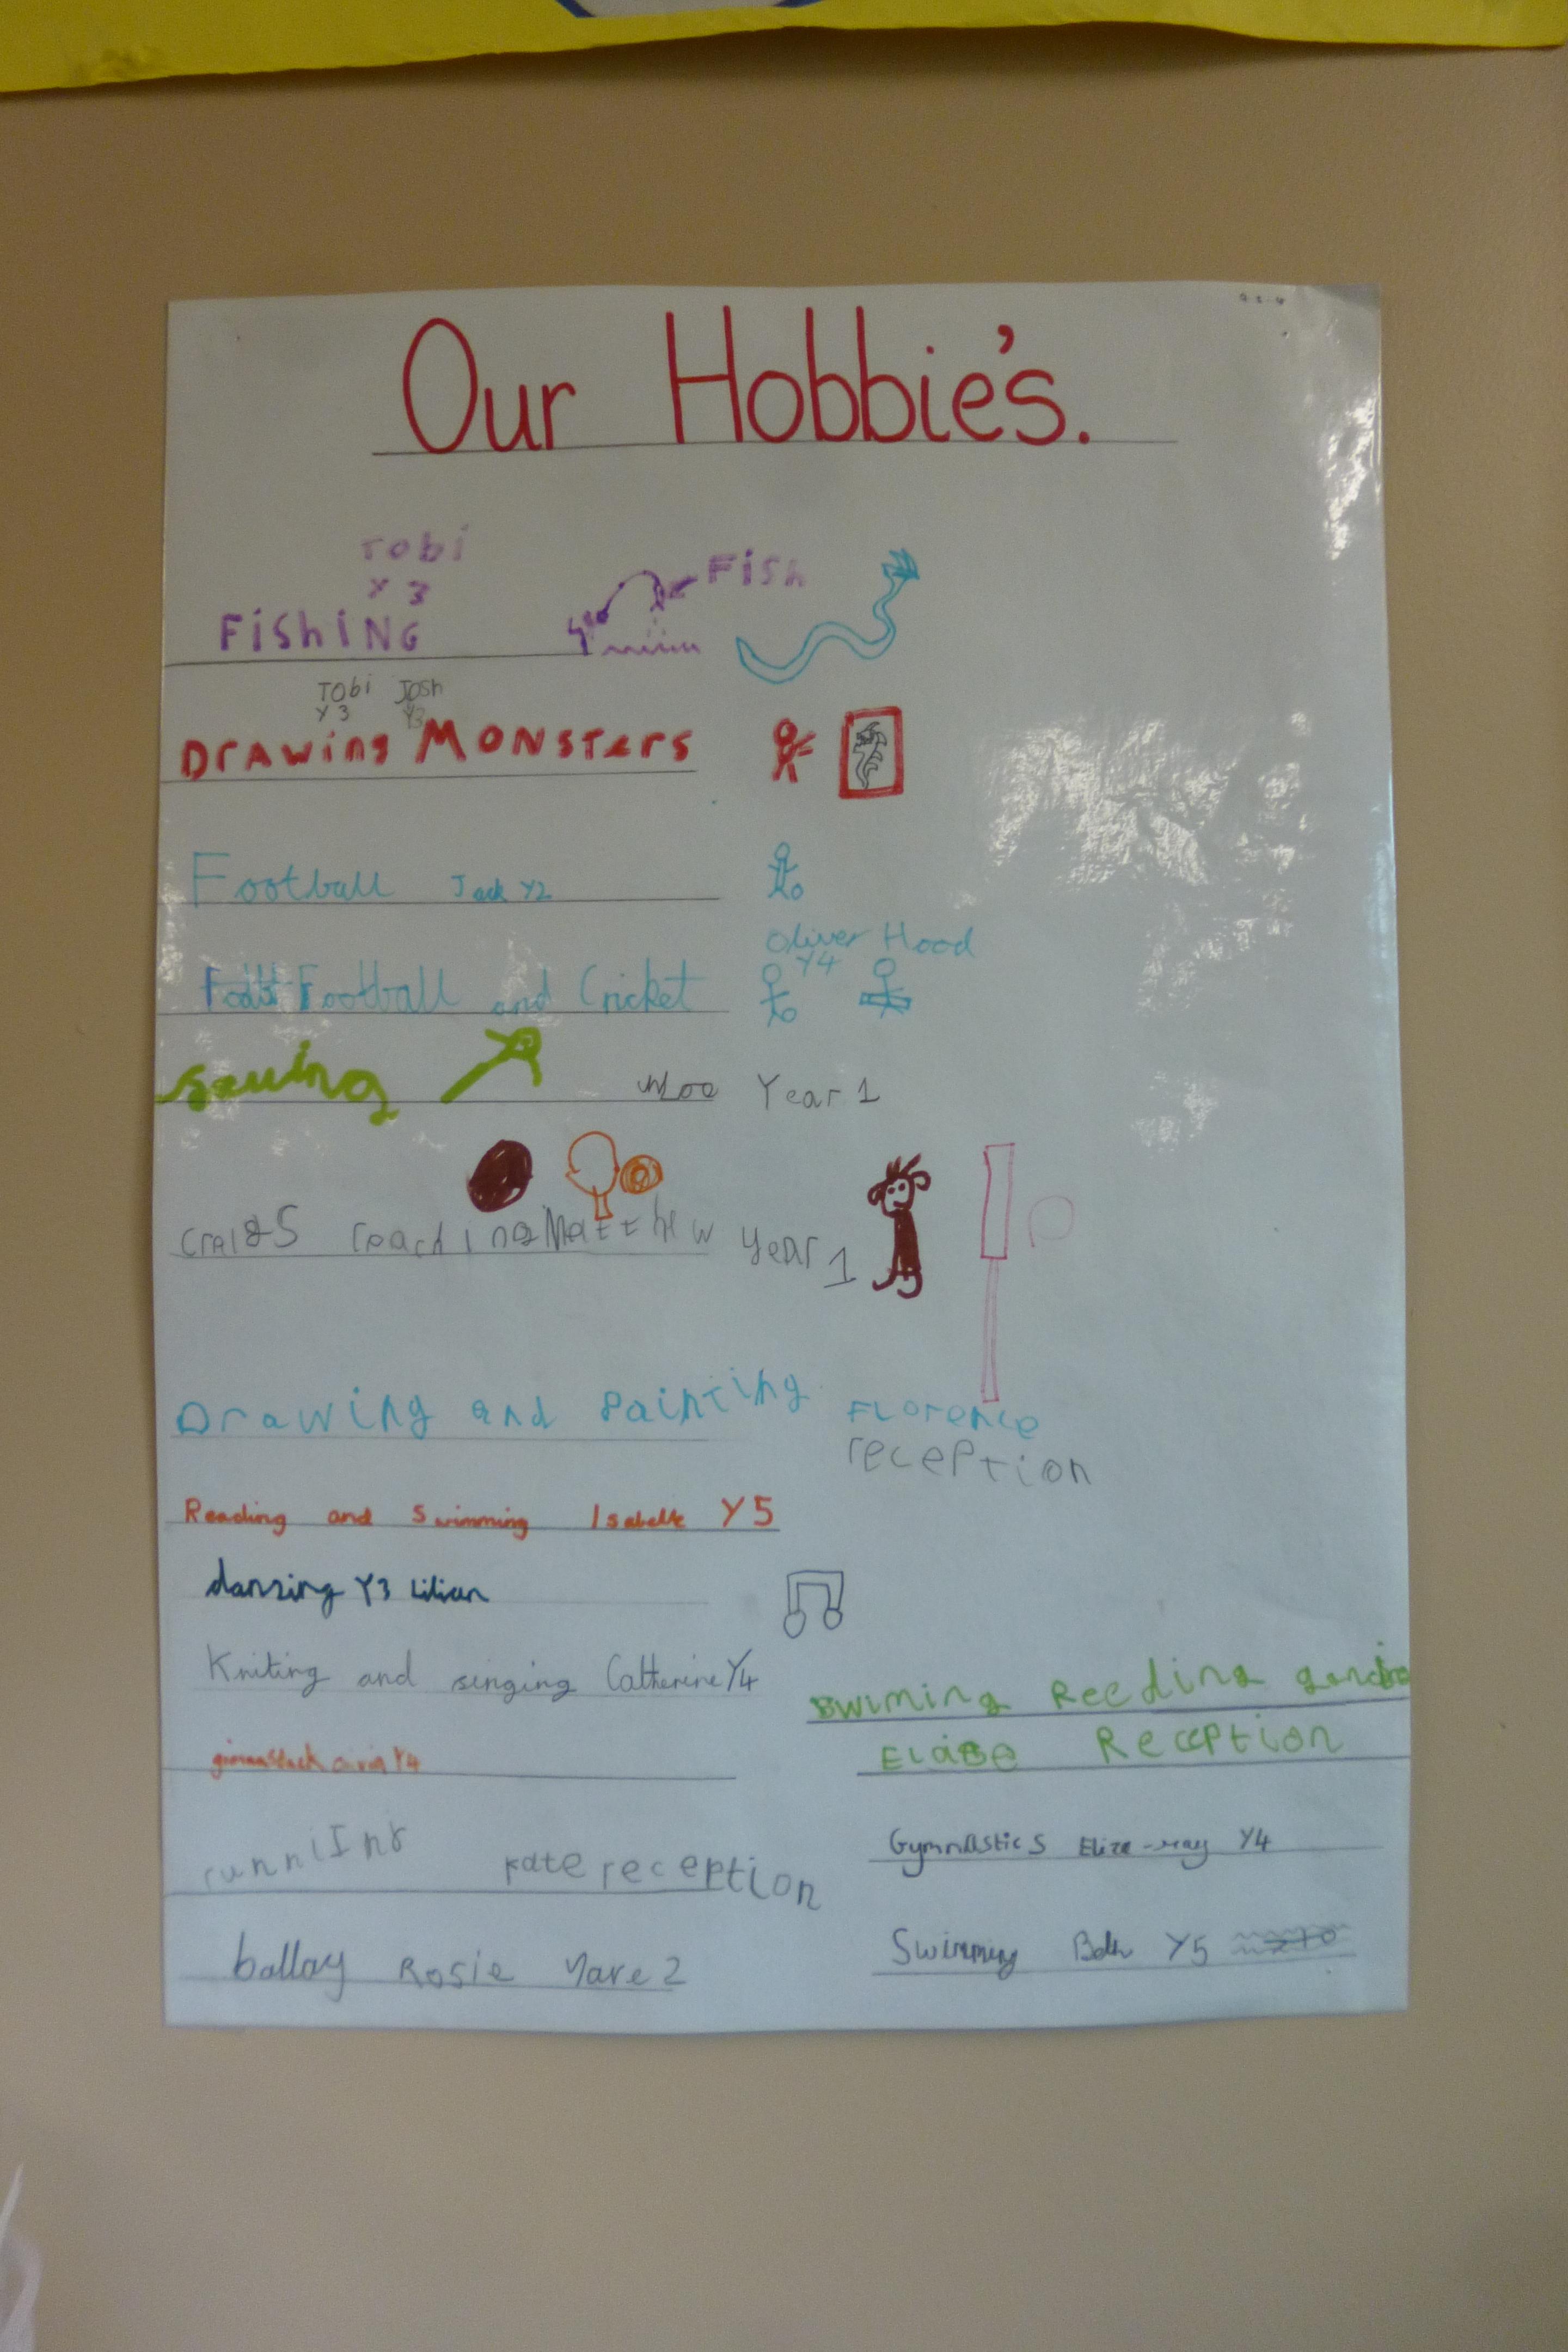 Our Hobbie's.
Tobi
Y 3
FishiNG
Fish
Tobi Josh
Y 3 Y3
DrAwing MONSTerS
Football Jack Y2
Oliver Hood
Y4
Football and Cricket
sewing Year 1
Matthew Year 1
Drawing and Painting FLorence
reception
Reading and Swimming Isabelle Y5
dansing Y3 Lilian
Kniting and singing Catherine Y4
Swiming Reeding
Reception
Y4
runniIng kate reception
Gymnastics Eliza-may Y4
ballay Rosie Yare 2
Swimming Beth Y5